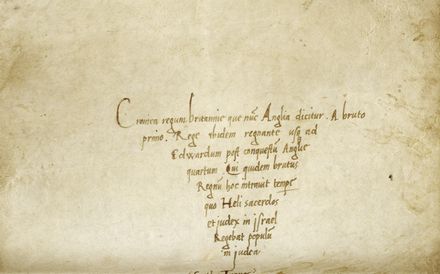 Cronica regum britannie que nūc Anglia dicitur. A bruto
primo. Rege ibidem regnante usq; ad
Edwardum post conquestū Anglie
quartum. Qui quidem brutus
Regnū hoc intrauit tempore
quo Heli sacerdos
et judex in israel
Regebat populū
in judea